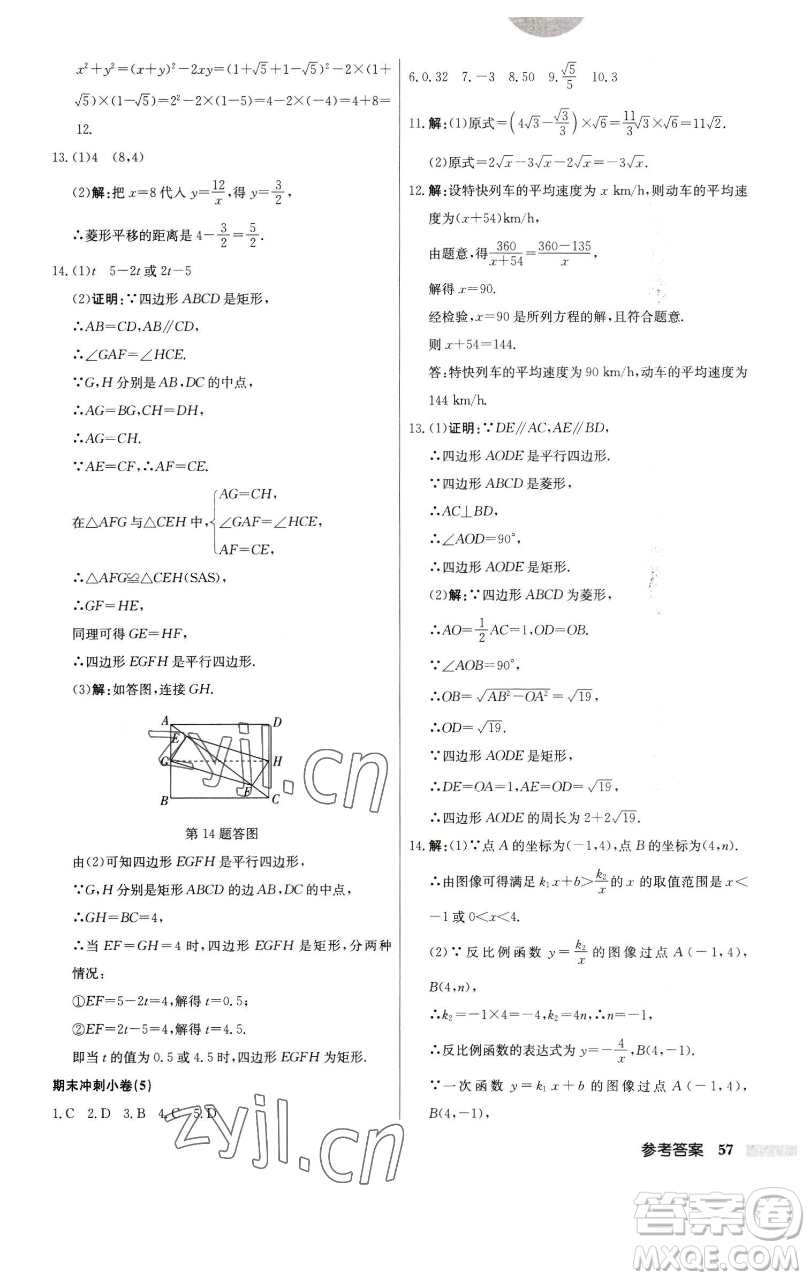 x²+y²=(x+y)²-2xy=(1+√5+1-√5)²-2×(1+
√5)×(1-√5)=2²-2×(1-5)=4-2×(-4)=4+8=
12.
13.(1)4 (8,4)
(2)解:把 x=8代入 y=12/x,得 y=3/2,
∴菱形平移的距离是 4-3/2=5/2.
14.(1)t 5-2t或2t-5
(2)证明:∵四边形 ABCD 是矩形,
∴AB=CD,AB∥CD,
∴∠GAF=∠HCE.
∵G,H 分别是 AB,DC 的中点,
∴AG=BG,CH=DH,
∴AG=CH.
∵AE=CF,∴AF=CE.
在△AFG 与△CEH 中,{AG=CH,
∠GAF=∠HCE,
AF=CE,
∴△AFG≌△CEH(SAS),
∴GF=HE,
同理可得 GE=HF,
∴四边形 EGFH 是平行四边形.
(3)解:如答图,连接 GH.
A D
E
G H
F
B C
第 14 题答图
由(2)可知四边形 EGFH 是平行四边形,
∵G,H 分别是矩形 ABCD 的边 AB,DC 的中点,
∴GH=BC=4,
∴当 EF=GH=4 时,四边形 EGFH 是矩形,分两种
情况:
①EF=5-2t=4,解得 t=0.5;
②EF=2t-5=4,解得 t=4.5.
即当 t 的值为 0.5 或 4.5 时,四边形 EGFH 为矩形.
期末冲刺小卷(5)
1.C 2.D 3.B 4.C 5.D
6.0.32 7.-3 8.50 9.√5/5 10.3
11.解:(1)原式=(4√3-√3/3)×√6=11/3√3×√6=11√2.
(2)原式=2√x-3√x-2√x=-3√x.
12.解:设特快列车的平均速度为 x km/h,则动车的平均速
度为(x+54)km/h,
由题意,得360/(x+54)=(360-135)/x,
解得 x=90.
经检验,x=90 是所列方程的解,且符合题意.
则 x+54=144.
答:特快列车的平均速度为 90 km/h,动车的平均速度为
144 km/h.
13.(1)证明:∵DE∥AC,AE∥BD,
∴四边形 AODE 是平行四边形.
∵四边形 ABCD 是菱形,
∴AC⊥BD,
∴∠AOD=90°,
∴四边形 AODE 是矩形.
(2)解:∵四边形 ABCD 为菱形,
∴AO=1/2AC=1,OD=OB.
∵∠AOB=90°,
∴OB=√(AB²-OA²)=√19,
∴OD=√19.
∵四边形 AODE 是矩形,
∴DE=OA=1,AE=OD=√19,
∴四边形 AODE 的周长为 2+2√19.
14.解:(1)∵点 A 的坐标为(-1,4),点 B 的坐标为(4,n).
∴由图像可得满足 k₁x+b>k₂/x的 x 的取值范围是 x<
-1 或 0<x<4.
(2)∵反比例函数 y=k₂/x的图像过点 A(-1,4),
B(4,n),
∴k₂=-1×4=-4,k₂=4n,∴n=-1,
∴反比例函数的表达式为 y=-4/x,B(4,-1).
∵一次函数 k₁x+b 的图像过点 A(-1,4),
B(4,-1),
参考答案 57
zyjl.cn
zyjl.cn
答案卷
MXQE.COM